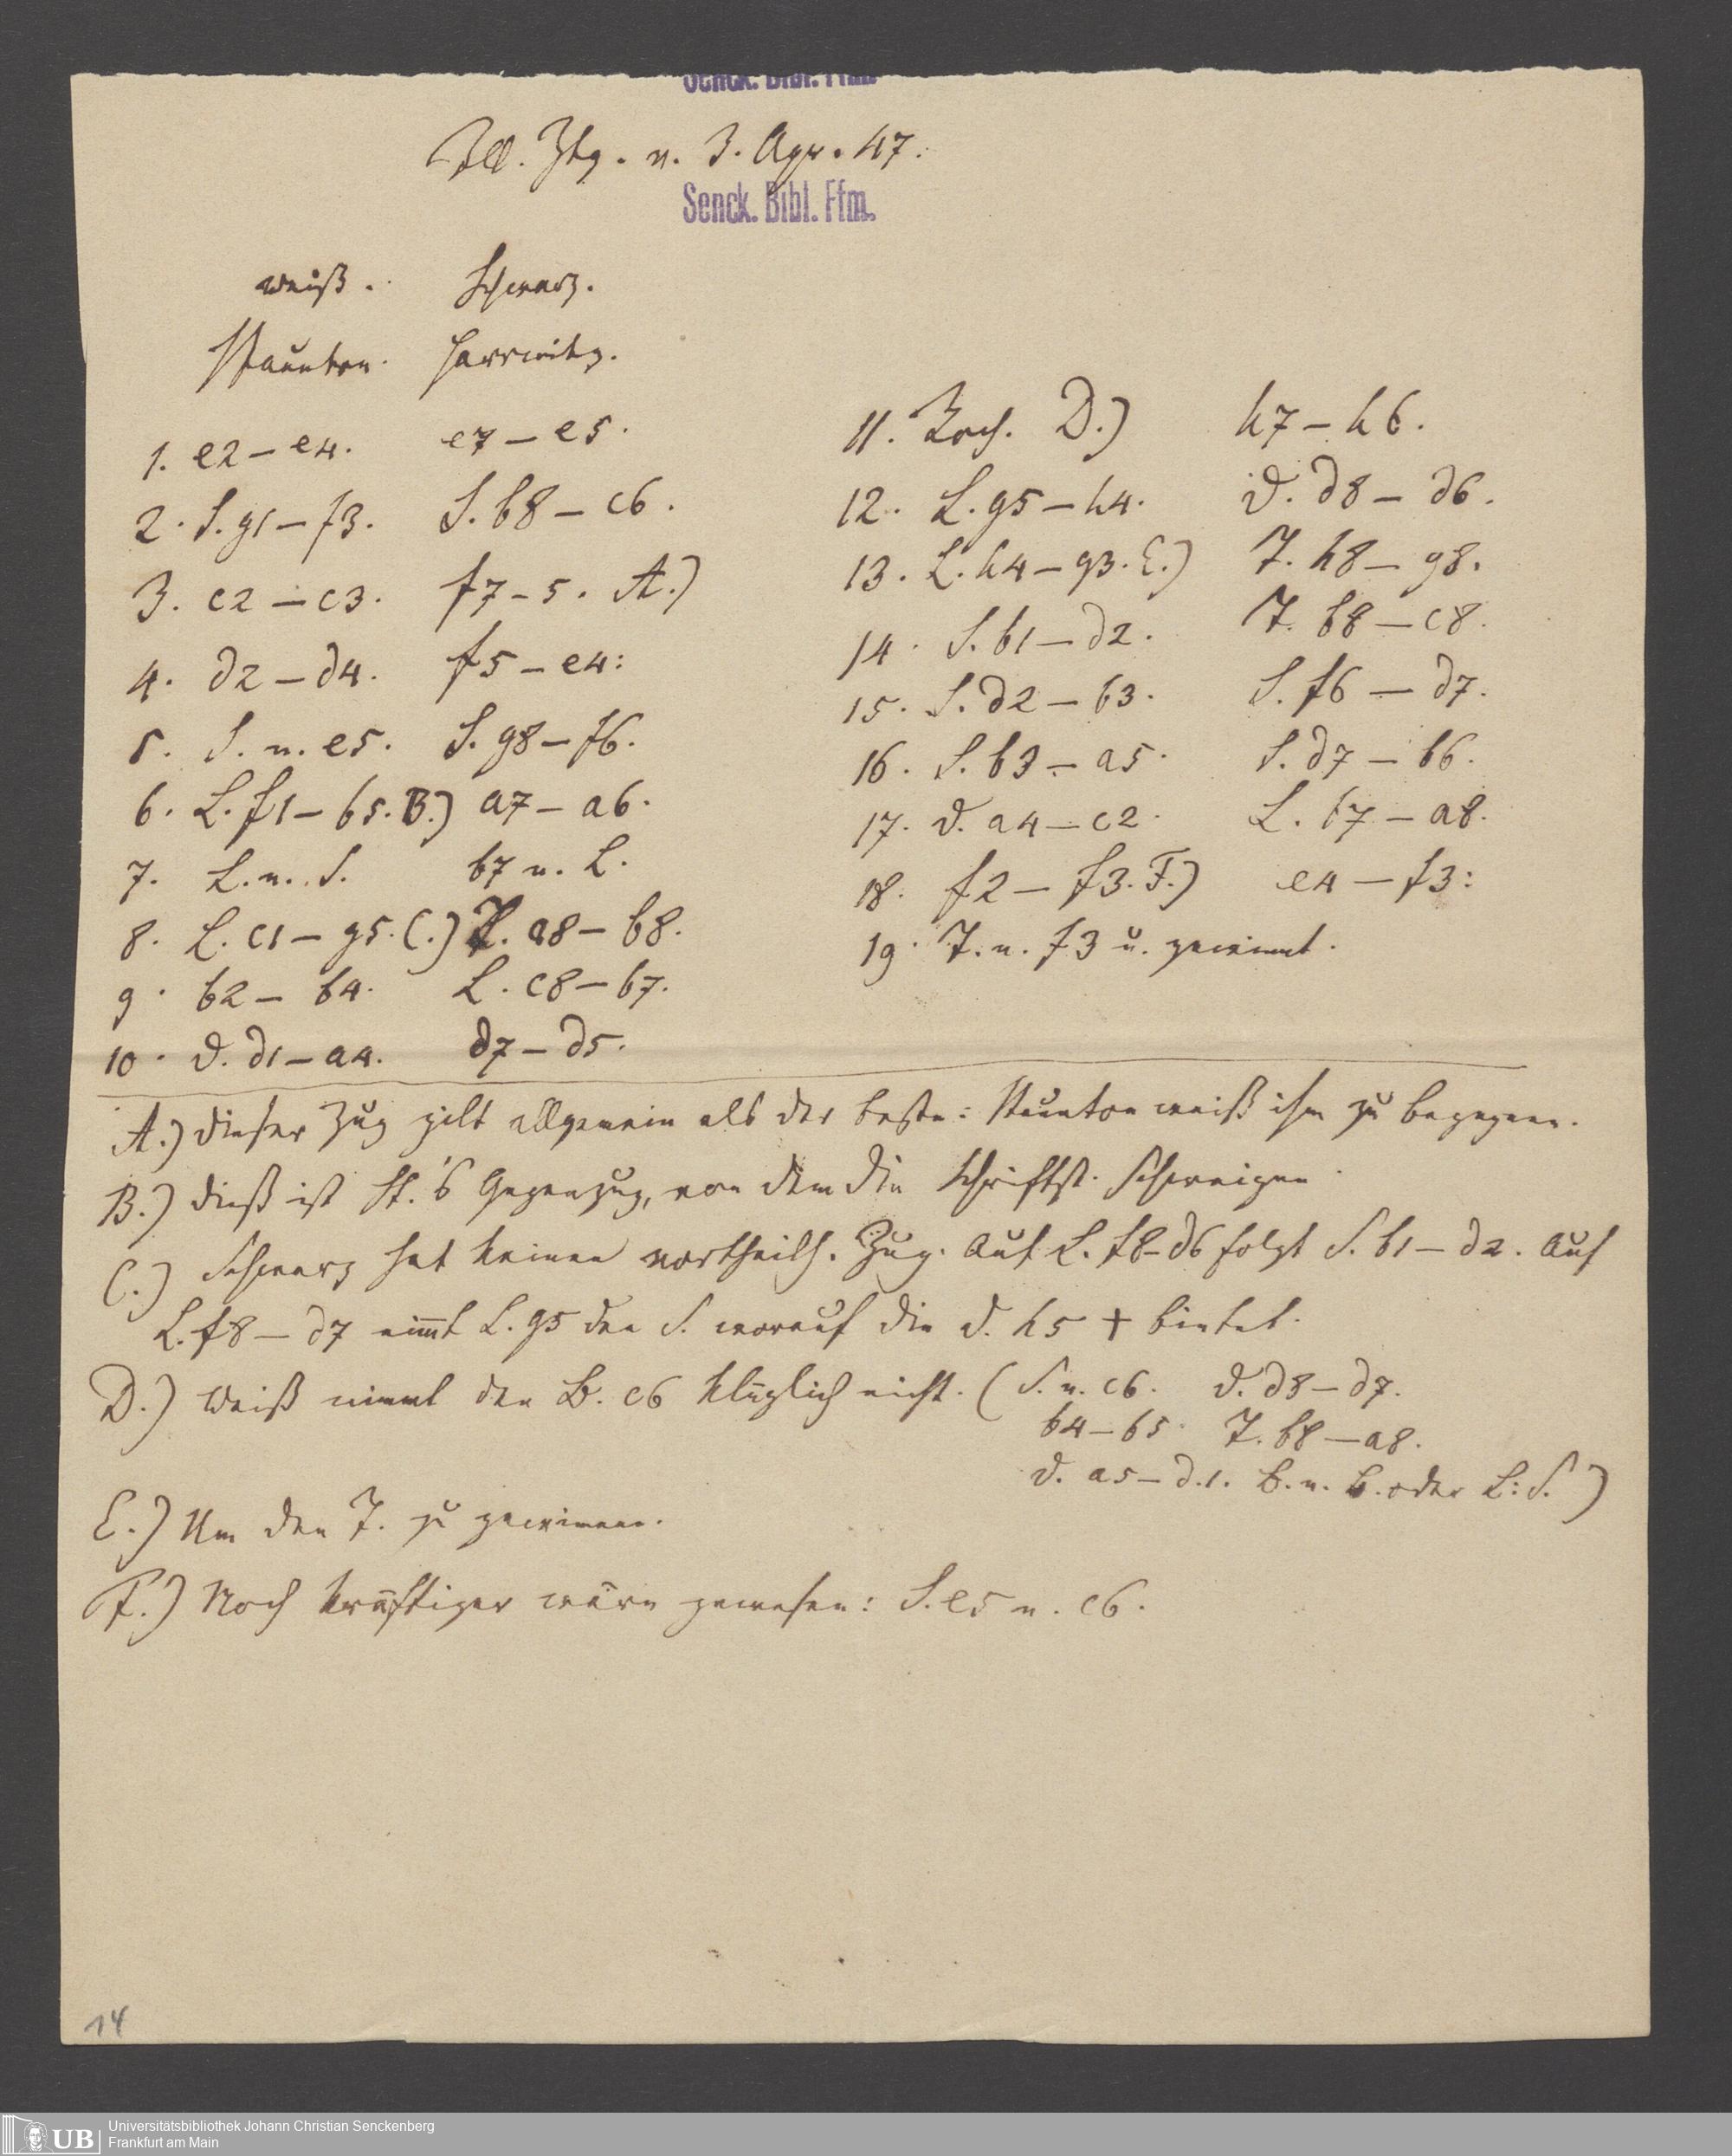 Senck. Bibl. Ffm.
Ill. Ztg. v. 3. Apr. 47.
Senck. Bibl. Ffm.
weiß. Schwarz.
Staunton. Harrwitz.
1. e2 – e4. e7 – e5.
2. S. g1 – f3. S. b8 – c6.
3. c2 – c3. f7 – 5. A.)
4. d2 – d4. f5 – e4:
5. S. n. e5. S. g8 – f6.
6. L. f1 – b5. B.) a7 – a6.
7. L. n. S. b7 n. L.
8. L. c1 – g5. C.) T. a8 – b8.
9. b2 – b4. L. c8 – b7.
10. D. d1 – a4. d7 – d5.
11. Roch. D.) h7 – h6.
12. L. g5 – h4. D. d8 – d6.
13. L. h4 – g3. E.) T. h8 – g8.
14. S. b1 – d2. T. b8 – c8.
15. S. d2 – b3. S. f6 – d7.
16. S. b3 – a5. S. d7 – b6.
17. D. a4 – c2. L. b7 – a8.
18. f2 – f3. F.) e4 – f3:
19. T. n. f3 u. gewinnt.
A.) Dieser Zug gilt allgemein als der beste: Staunton weiß ihm zu begegnen.
B.) Dieß ist St.'s Gegenzug, von dem die Schriftst. schweigen.
C.) Schwarz hat keinen vortheilh. Zug. Auf L. f8 – d6 folgt S. b1 – d2. Auf
L. f8 – d7 nimmt L. g5 den S. worauf die D. h5 + bietet.
D.) Weiß nimmt den B. c6 klüglich nicht. (S. n. c6. D. d8 – d7.
b4 – b5. T. b8 – a8.
D. a5 – d.1. B. n. B. oder L: S.)
E.) Um den T. zu gewinnen.
F.) Noch kräftiger wäre gewesen: S. e5 n. c6.
14
UB
Universitätsbibliothek Johann Christian Senckenberg
Frankfurt am Main